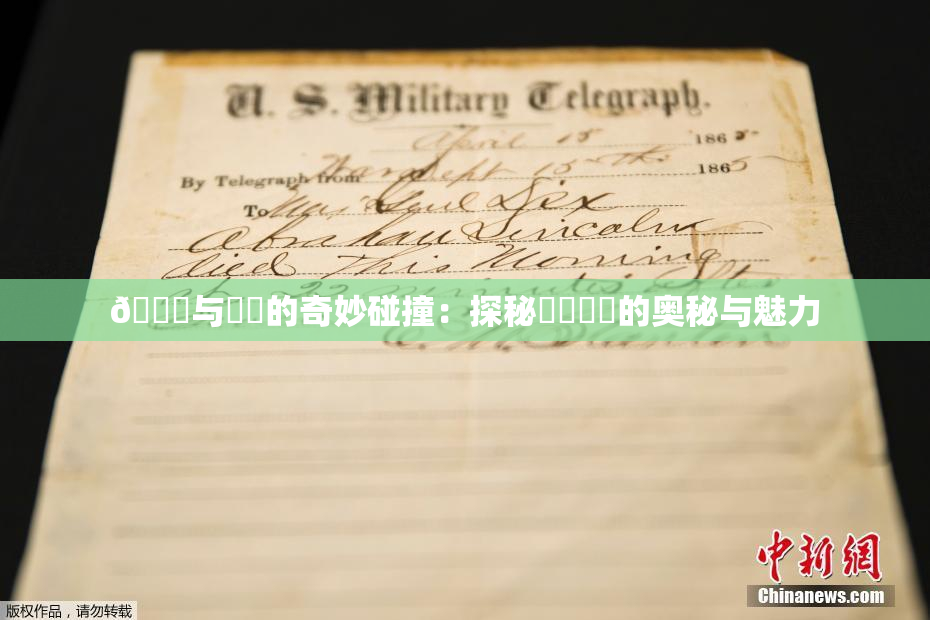 U. S. Military Telegraph.
April 15 1865
By Telegraph from War Dept 15th 1865
To Maj Genl Dix
Abraham Lincoln
died This Morning
at 22 minutes after
与的奇妙碰撞：探秘的奥秘与魅力
E. M. Stanton
中新网
Chinanews.com
版权作品，请勿转载